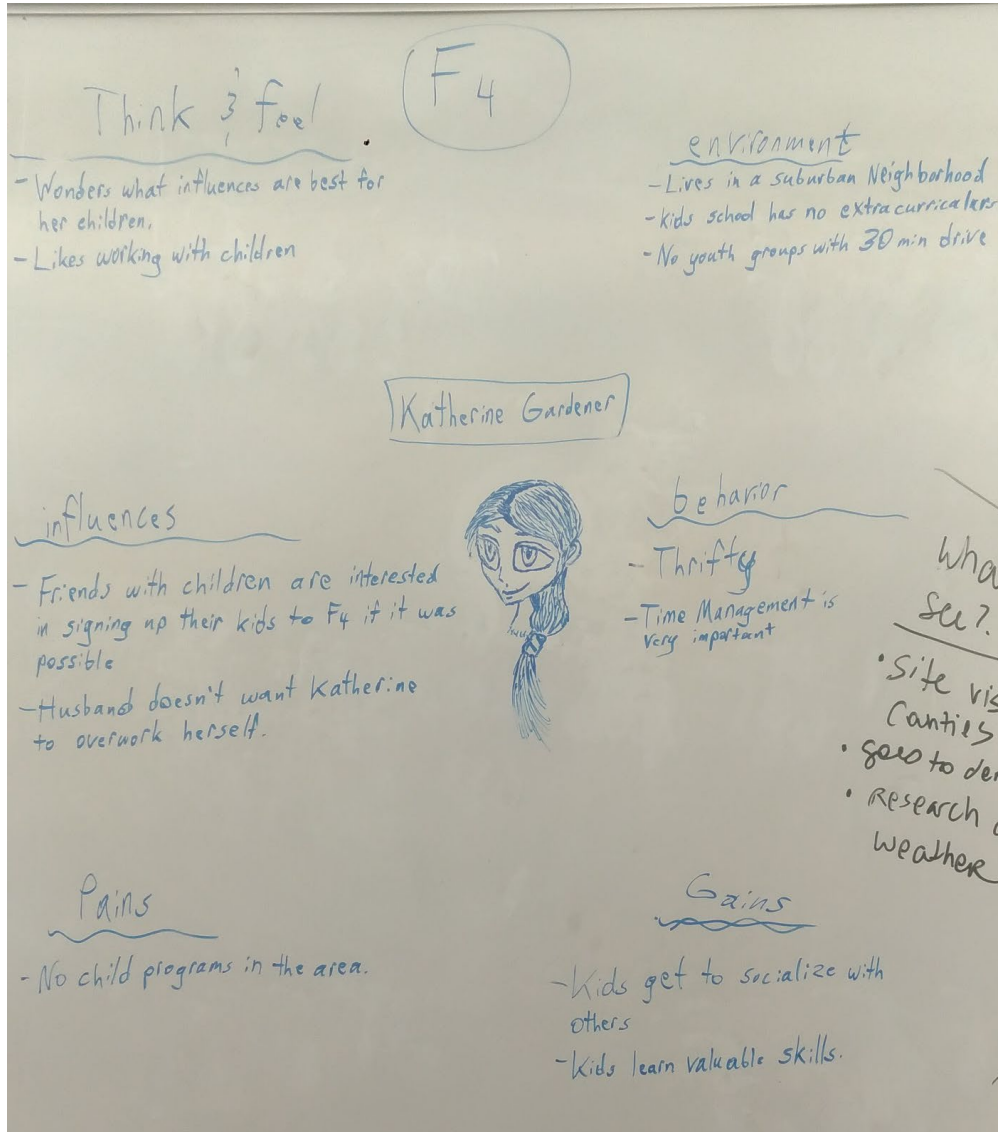 F4
Think & feel
- Wonders what influences are best for
her children.
- Likes working with children
environment
- Lives in a suburban Neighborhood
- kids school has no extracurriculars
- No youth groups with 30 min drive
Katherine Gardener
influences
- Friends with children are interested
in signing up their kids to F4 if it was
possible
- Husband doesn't want Katherine
to overwork herself.
behavior
- Thrifty
- Time Management is
very important
Pains
- No child programs in the area.
Gains
- Kids get to socialize with
others
- Kids learn valuable skills.
See?
• Site
Canties
• goes to
• Research
weather